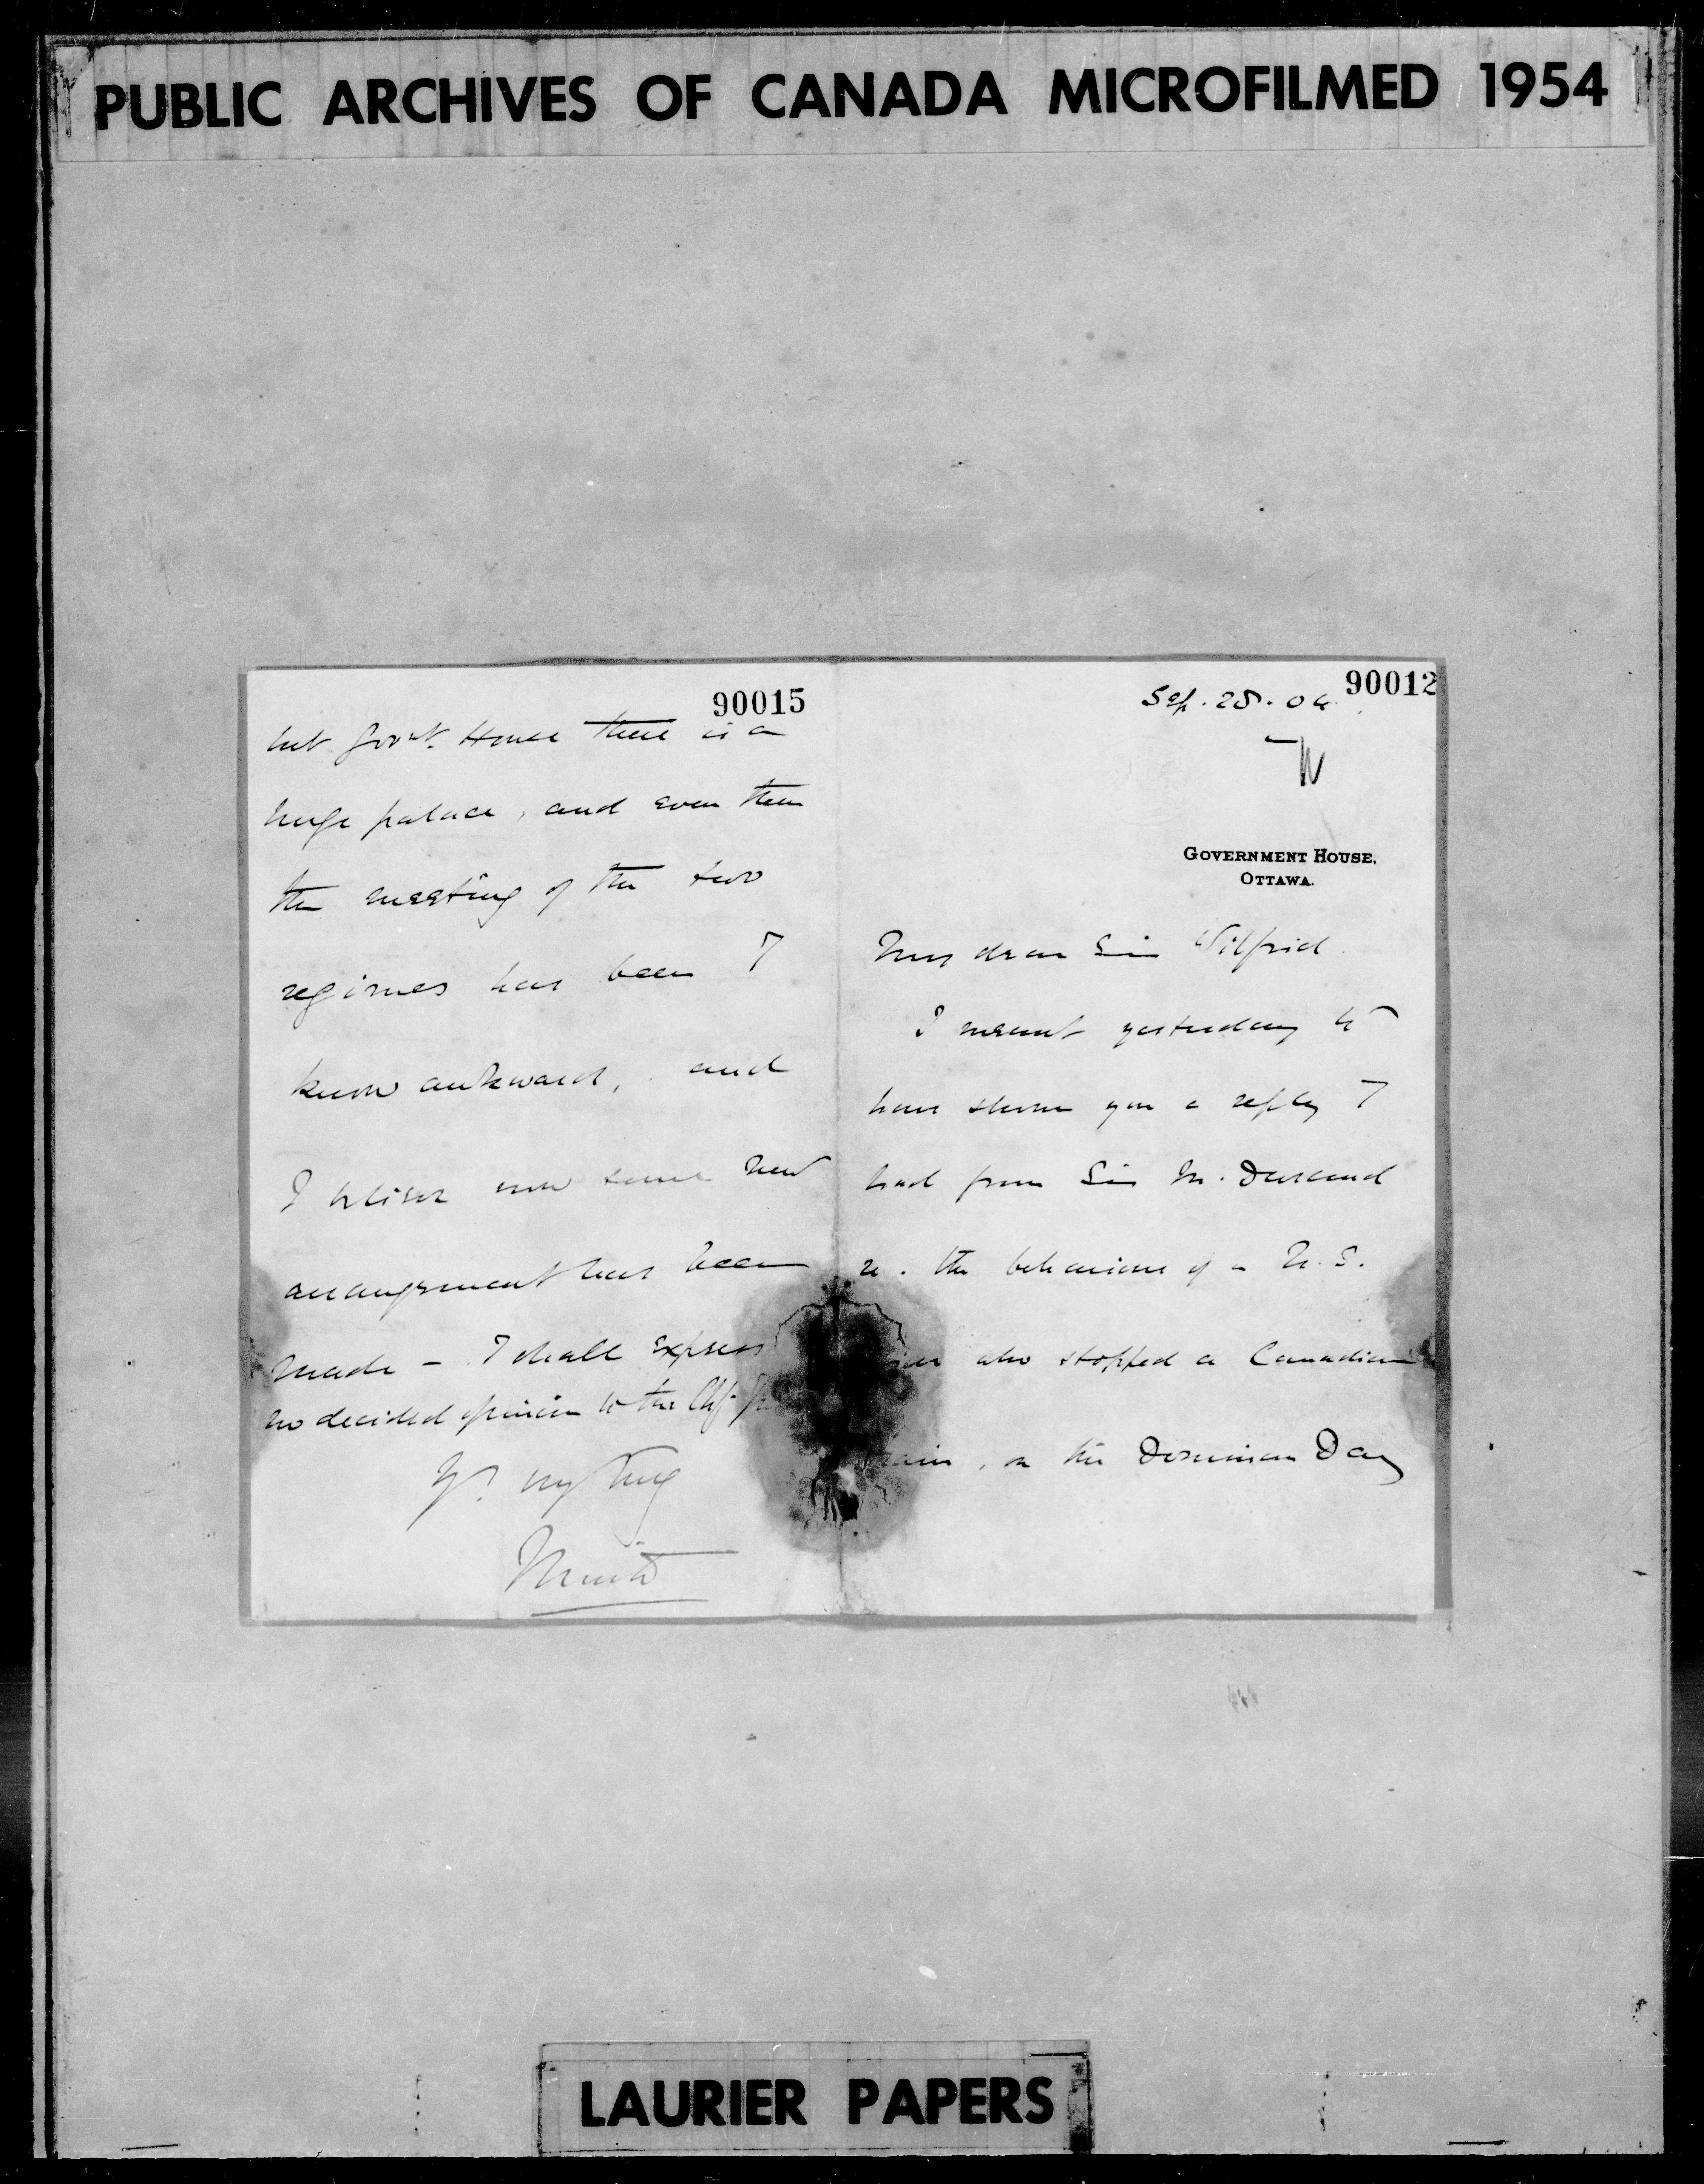 PUBLIC ARCHIVES OF CANADA MICROFILMED 1954
90015
but Govt. House there is a
huge palace, and even then
the meeting of the two
regimes has been I
know awkward, and
I believe now some new
arrangement has been
made - I shall express
no decided opinion to the
Yrs. very truly
Minto
90012
Sep. 28. 04
GOVERNMENT HOUSE,
OTTAWA.
My dear Sir Wilfrid
I meant yesterday to
have shown you a reply I
had from Sir M. Durand
re. the behaviour of a U.S.
who stopped a Canadian
, on the Dominion Day
LAURIER PAPERS